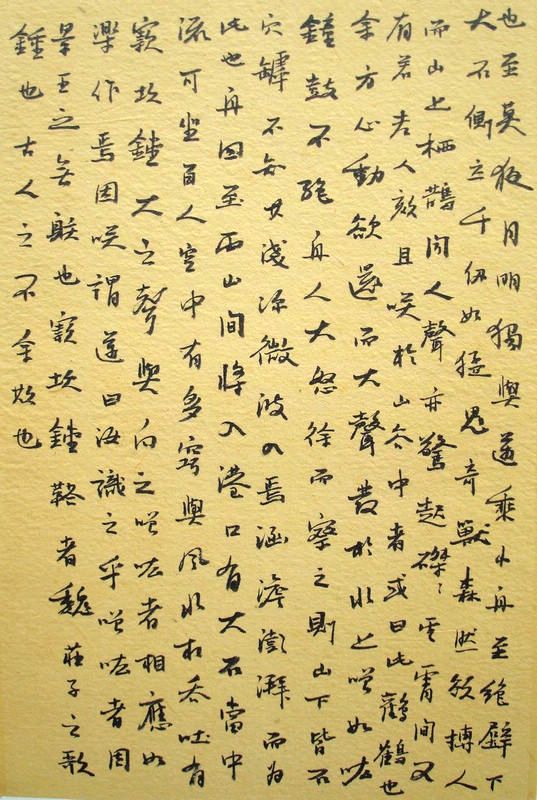 也至莫夜月明獨與邁乘小舟至絕壁下
大石側立千仞如猛鬼奇獸森然欲搏人
而山上栖鶻聞人聲亦驚起磔〻雲霄間又
有若老人欬且咲於山谷中者或曰此鸛鶴也
余方心動欲還而大聲發於水上噌如吰
鐘鼓不絕舟人大恐徐而察之則山下皆石
穴罅不知其淺深微波入焉涵澹澎湃而為
此也舟回至兩山間將入港口有大石當中
流可坐百人空中有多竅與風水相吞吐有
窾坎鏜大之聲與向之噌吰者相應如
樂作焉因咲謂邁曰汝識之乎噌吰者周
景王之無射也窾坎鏜鞳者魏莊子之歌
鍾也古人之不余欺也